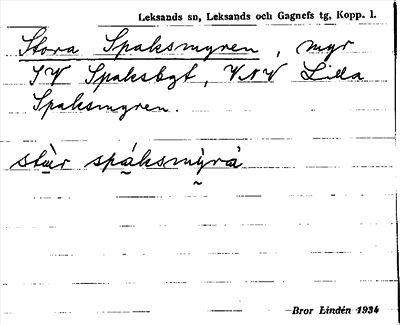 Leksands sn, Leksands och Gagnefs tg, Kopp. l.
Stora Spaksmyren, myr
SV Spaksbgt, VNV Lilla
Spaksmyren.
stὰr spáksmỳrà
Bror Lindén 1934